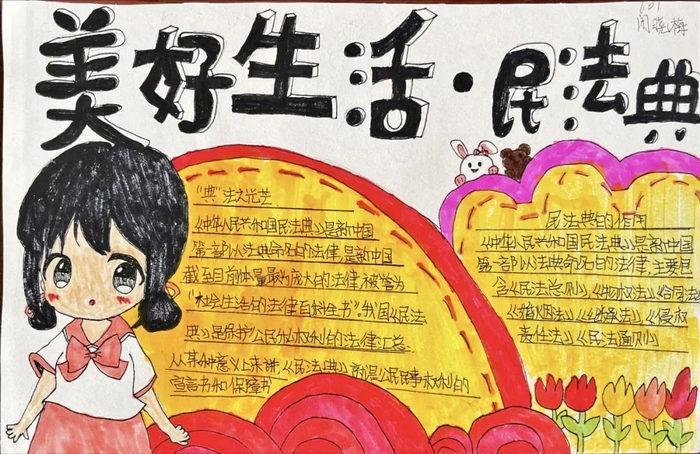 601
闵晓梅
美好生活·民法典
"典"法之光芒
《中华人民共和国民法典》是新中国
第一部以法典命名的法律,是新中国
截至目前体量最为庞大的法律,被誉为
"社会生活的法律百科全书"。我国《民法
典》是保护公民私权利的法律汇总
从某种意义上来讲,《民法典》就是公民民事权利的
宣言书和保障书
民法典的作用
《中华人民共和国民法典》是新中国
第一部以法典命名的法律,主要包
含《民法总则》《物权法》《合同法》
《婚姻法》《继承法》《侵权
责任法》《民法通则》